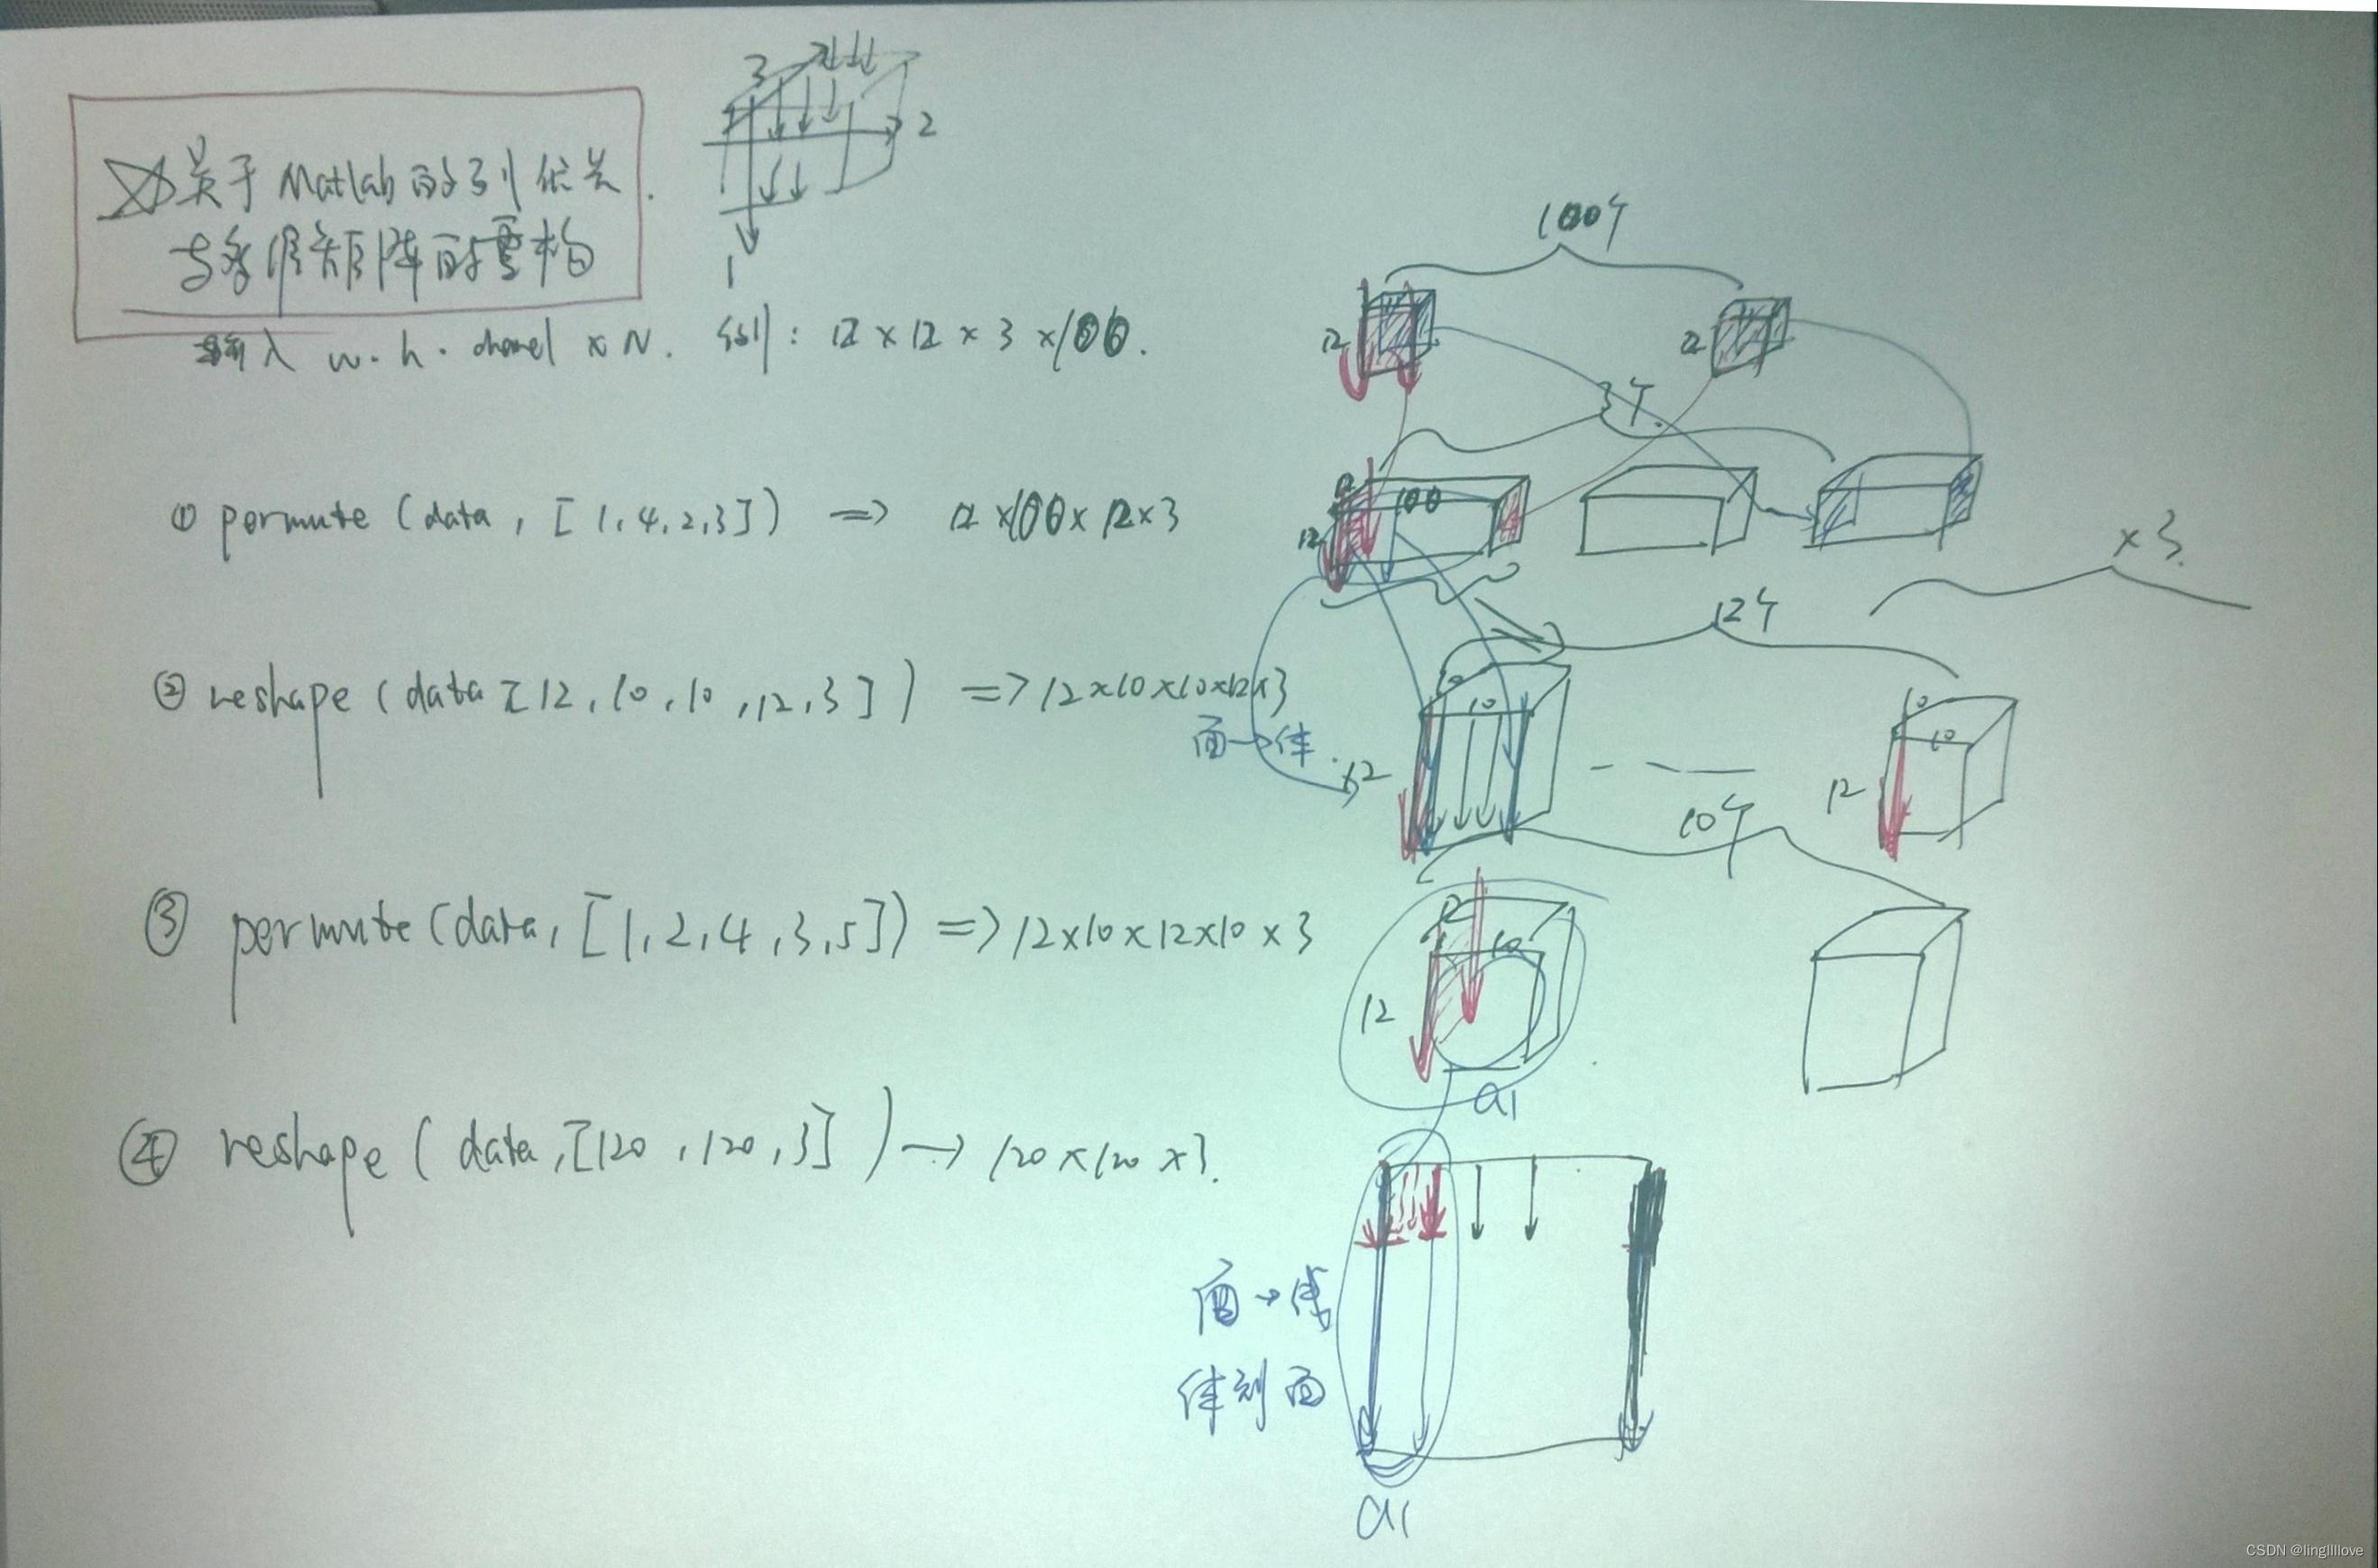 关于Matlab的列优先
与多维矩阵的重构
输入 w.h.channel x N. 例: 12 x 12 x 3 x 100.
3
2
1
① permute (data, [1,4,2,3]) => 12 x 100 x 12 x 3
② reshape (data [12,10,10,12,3]) => 12x10x10x12x3
面→体
③ permute (data, [1,2,4,3,5]) => 12x10x12x10x3
④ reshape (data, [120,120,3]) → 120 x 120 x 3.
面→体
体到面
100个
12
12
3个
12
100
12
x 3
12个
10
10
12
10
10
12
10个
12
10
12
a1
a1
CSDN @lingllllove